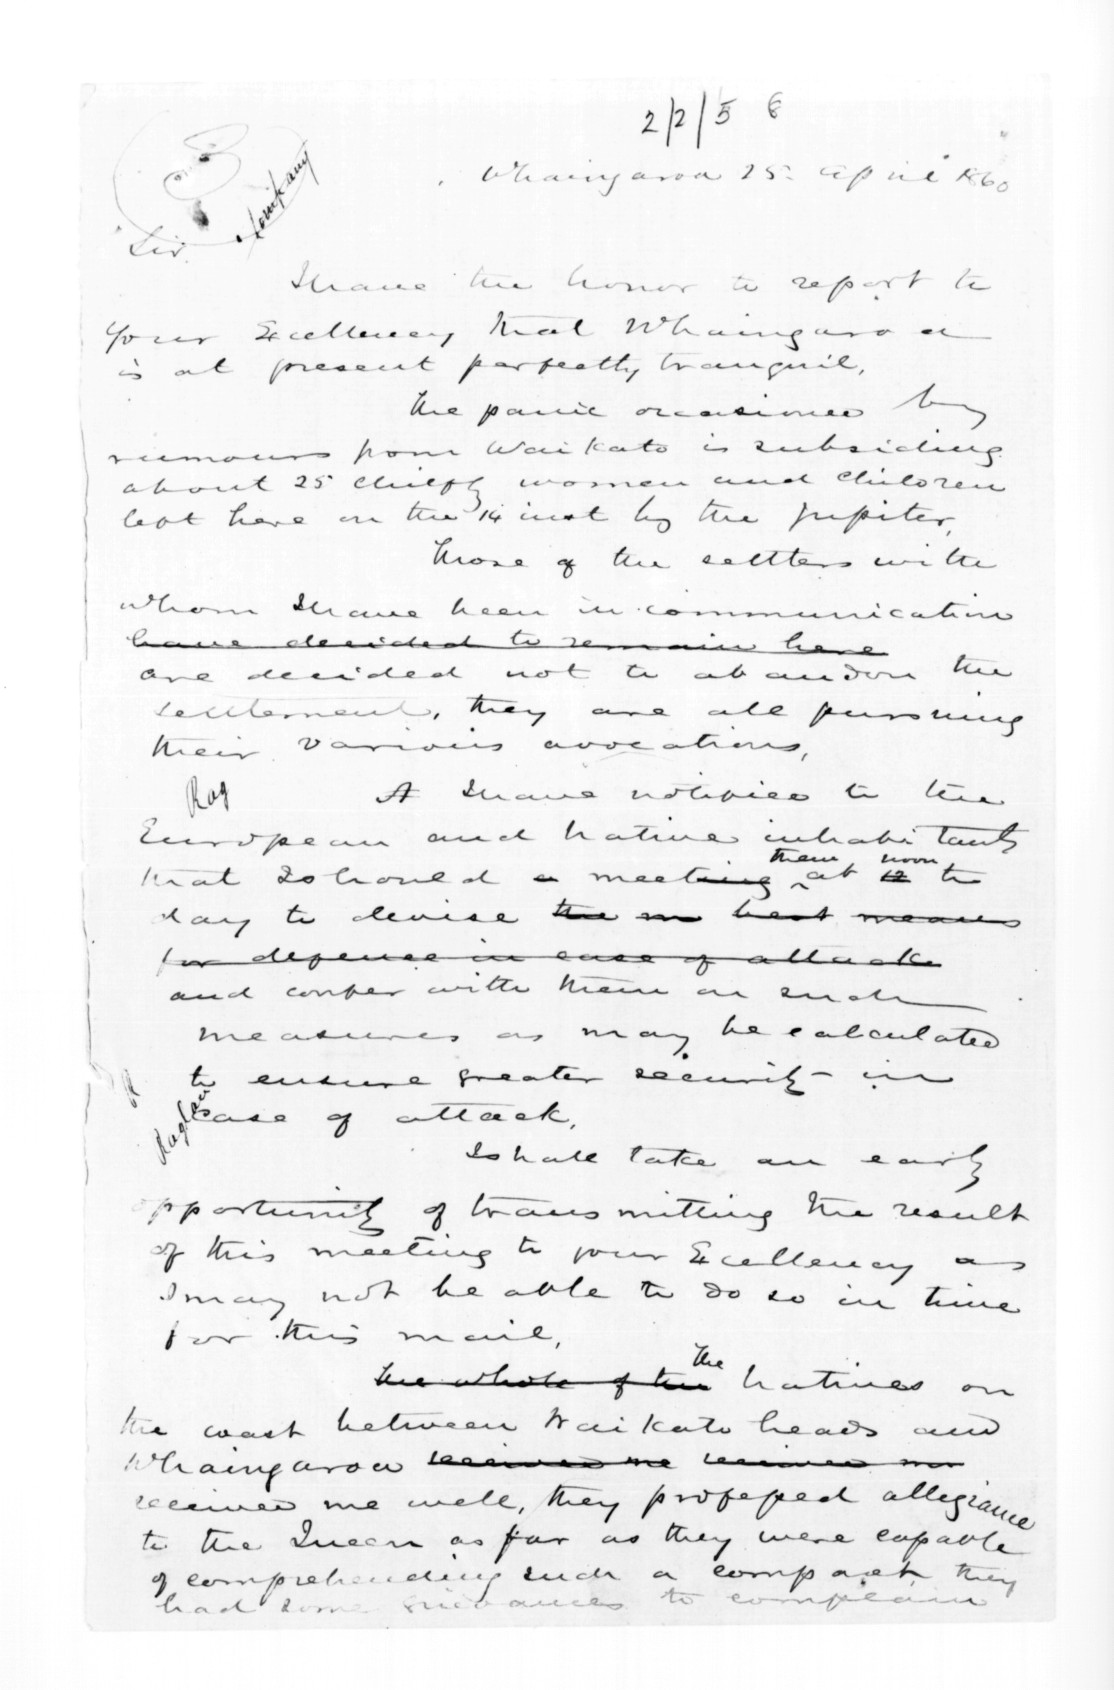 2/2/5 8
Whaingaroa 25. April 1860
Company
Sir
I have the honor to report to
Your Excellency that Whaingaroa
is at present perfectly tranquil,
the panic occasioned by
rumours from Waikato is subsiding
about 25 chiefly women and children
left here on the 14 inst by the Jupiter,
those of the settlers with
whom I have been in communication
have decided to remain here
are decided not to abandon the
settlement, they are all pursuing
their various avocations,
Rag
A I have notified to the
European and Native inhabitants
them noon
that I should a meeting at 12 to
day to devise the m best means
for defence in case of attack
and confer with them on such
measures as may be calculated
to ensure greater security in
case of attack,
Raglan
I shall take an early
opportunity of transmitting the result
of this meeting to your Excellency as
I may not be able to do so in time
for this mail,
the
the whole of the natives on
the coast between Waikato heads and
Whaingaroa received me received me
received me well, they professed allegiance
to the Queen as far as they were capable
of comprehending such a compact, they
had some grievances to complain